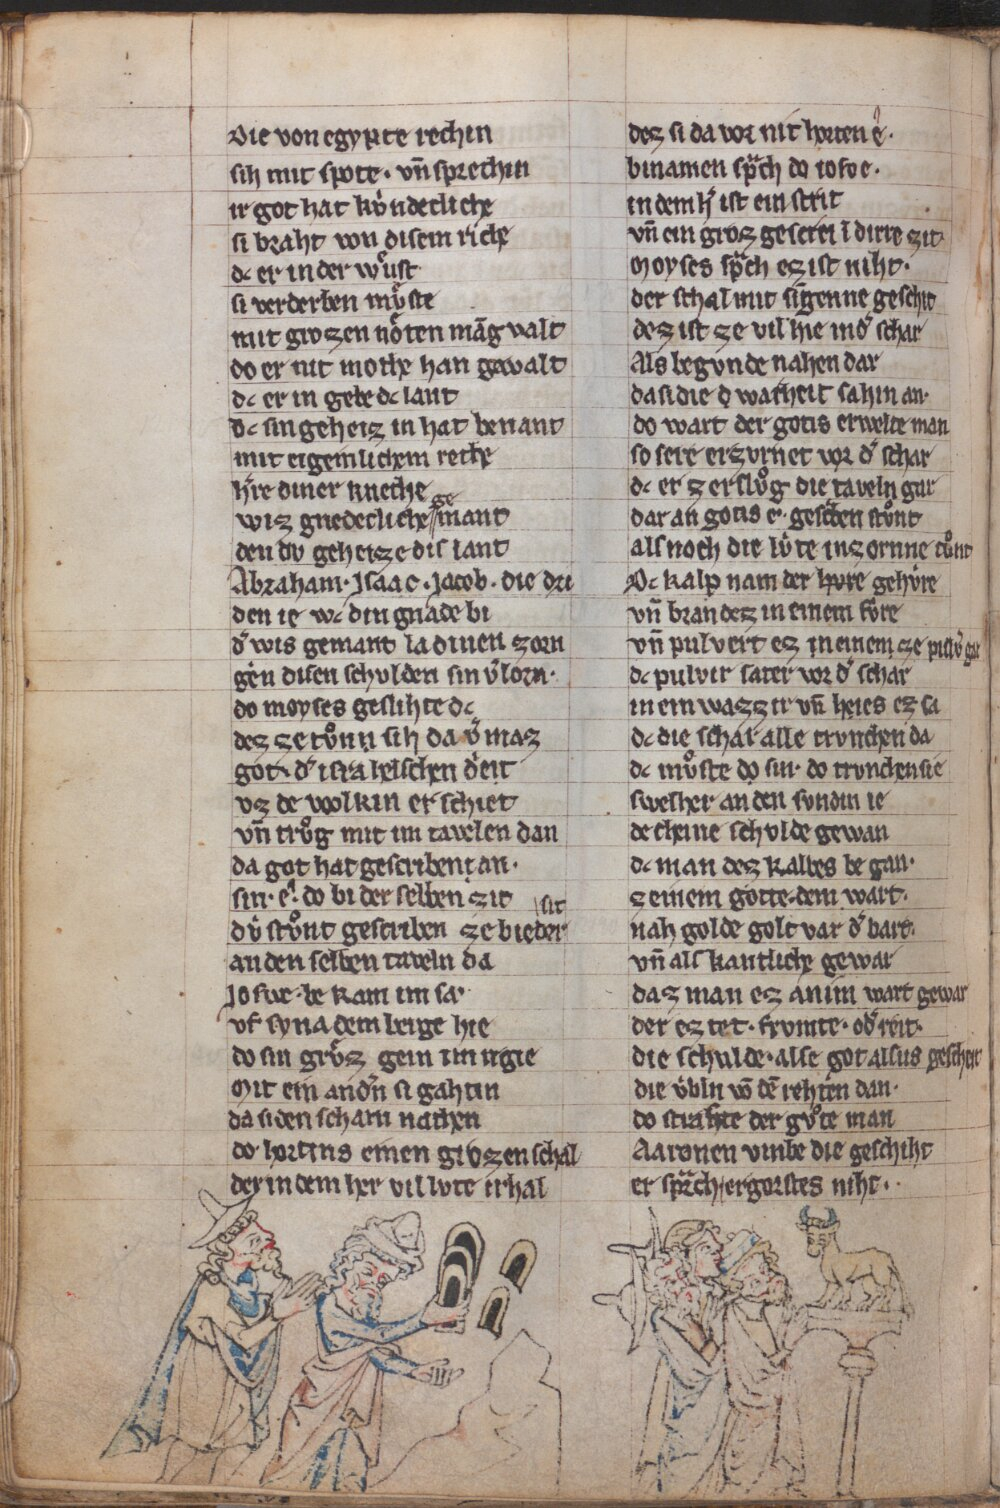 Die von egypte rechin
sih mit spote · vn̄ sprechin
ir got hat kv̍ndecliche
si braht von disem riche
dc er in der wͦust
si verderben mvͤste
mit grozen nöten māgvalt
do er nit mothe han gewalt
dc er in gebe dc lant
dc sin geheiz in hat benant
mit eigenlichem rethe
h̄re diner knethe
wiz gnedecliche ge mant
den dv geheizze dis lant
Abraham · Isaac · Jacob · die dri
den ie wc din gnade bi
d̍ wis gemant la dinen zorn
gen disen schvlden sin v̍lorn ·
do moyses geslihte dc
dez ze tvͦnn sih da v̍maz
got · d̍ israhelschen d̍eit
vz de wolkin er schiet
vn̄ trvͦg mit im tavelen dan
da got hat gescriben an ·
sin · e · do bi der selben zit
dv̍ stvͦnt gescriben ze bieder sit
an den selben taveln da
Josue · be kam im sa ·
vf syna dem berge hie
do sin grvͦz gein im irgie
Mit ein and̍n si gahtin
da si den scharn nathen
do hortins einen grozen schal
der in dem her vil lvte irhal
dez si da vor nit horten e ·
binamen sp̄ch do iosve ·
in dem h̍ ist ein strit
vn̄ ein groz gescrei ī dirre zit
Moyses sp̄ch ez ist niht ·
der schal mit singenne geschit
dez ist ze vil hie in d̍ schar
Als begvnde nahen dar
da si die d warheit sahin an ·
do wart der gotis erwelte man
so sere erzvrnet vor d̍ schar
dc er zerslvͦg die taveln gar
dar an gotis e · gescriben stvͦnt
als noch die lv̍te in zornne tvͦnt
Dc kalp nam der gehv̍re
vn̄ brandez in einem fv̍re
vn̄ pulvert ez in einem ze pulv̍ gar
dc pulvir sater vor d̍ schar
in ein wazzir vn̄ hies ez sa
dc die schar alle trvnchen da
dc mvͦste do sin · do trvnchen sie
swelher an den svndin ie
decheine schvlde gewan
dc man dez kalbes be gan ·
zeinem gotte · dem wart ·
nah golde golt var d̍ bart ·
vn̄ als kantliche gewar
daz man ez an im wart gewar
der ez tet · frvmte · od̍ reit ·
die schulde · alse got alsus gescheit
die v̍beln vō dē rehten dan ·
do strafte der gvͦte man
Aaronen vmbe die geschiht
er sprach ergorstes niht ·